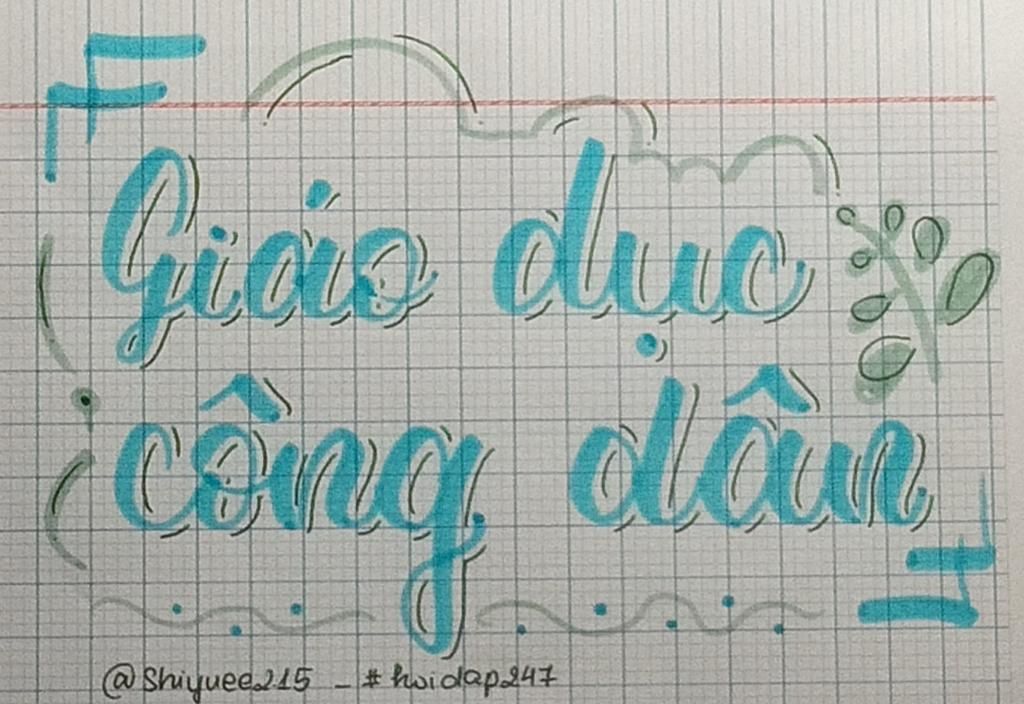 Giáo dục
công dân
@Shiyuee215 _ # hoidap247